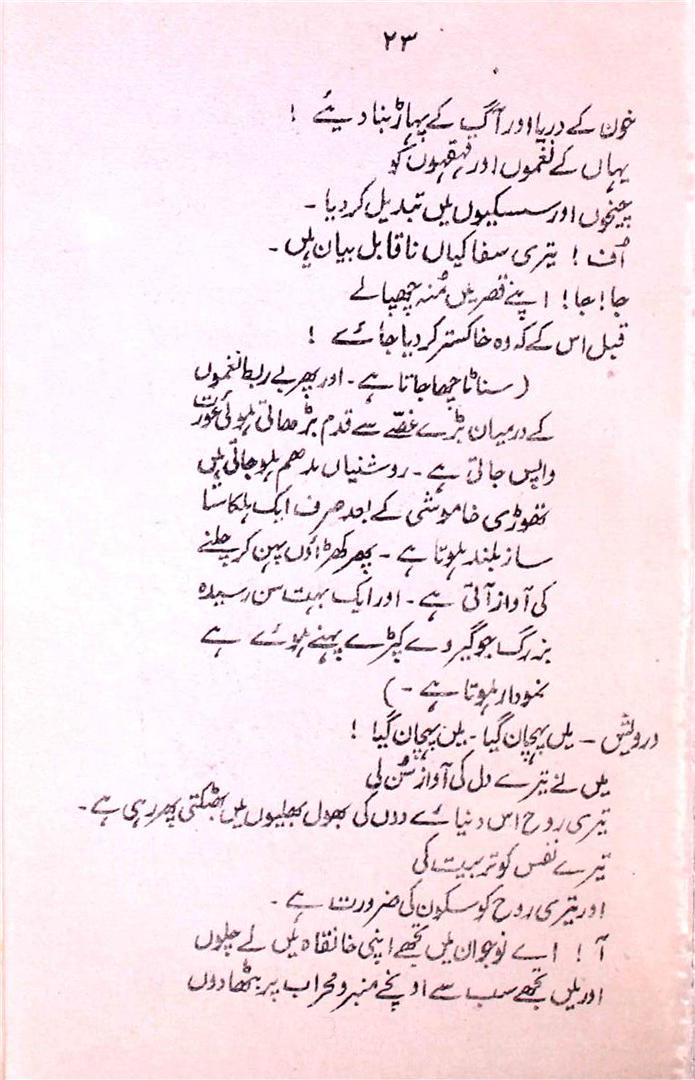 ۲۳
خون کے دریا اور آگ کے پہاڑ بنا دیئے !
یہاں کے نغموں اور قہقہوں کو
چیخوں اور سسکیوں میں تبدیل کر دیا ۔
اُف ! تیری سفاکیاں ناقابل بیان ہیں ۔
جا ! جا ! اپنے قصر میں مُنہ چھپالے
قبل اس کے کہ وہ خاکستر کر دیا جائے !
( سناٹا چھا جاتا ہے ۔ اور پھر بے ربط نغموں
کے درمیان بڑے غصّے سے قدم بڑھاتی ہوئی عورت
واپس جاتی ہے ۔ روشنیاں مدھم ہو جاتی ہیں
تھوڑی خاموشی کے بعد صرف ایک ہلکا سا
ساز بلند ہوتا ہے ۔ پھر کھڑاؤں پہن کر چلنے
کی آواز آتی ہے ۔ اور ایک بہت سن رسیدہ
بزرگ جو گیروے کپڑے پہنے ہوئے ہے
نمودار ہوتا ہے ۔ )
درویش ۔ میں پہچان گیا ۔ میں پہچان گیا !
میں نے تیرے دل کی آواز سُن لی
تیری روح اس دنیائے دوں کی بھول بھلیوں میں بھٹکتی پھر رہی ہے ۔
تیرے نفس کو تربیت کی
اور تیری روح کو سکون کی ضرورت ہے ۔
آ ! اے نوجوان میں تجھے اپنی خانقاہ میں لے چلوں
اور میں تجھے سب سے اونچے منبر و محراب پر بٹھا دوں